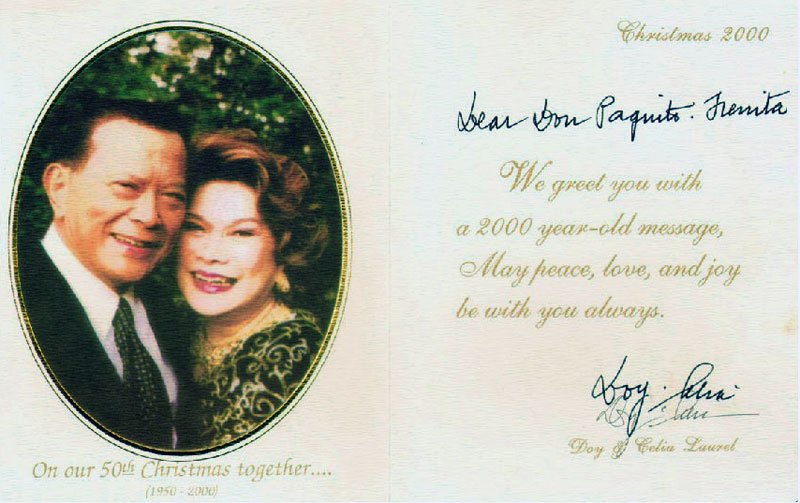 On our 50th Christmas together....
(1950 - 2000)
Christmas 2000
Dear Don Paquito.
We greet you with
a 2000 year-old message,
May peace, love, and joy
be with you always.
Doy. Celia
Doy & Celia Laurel